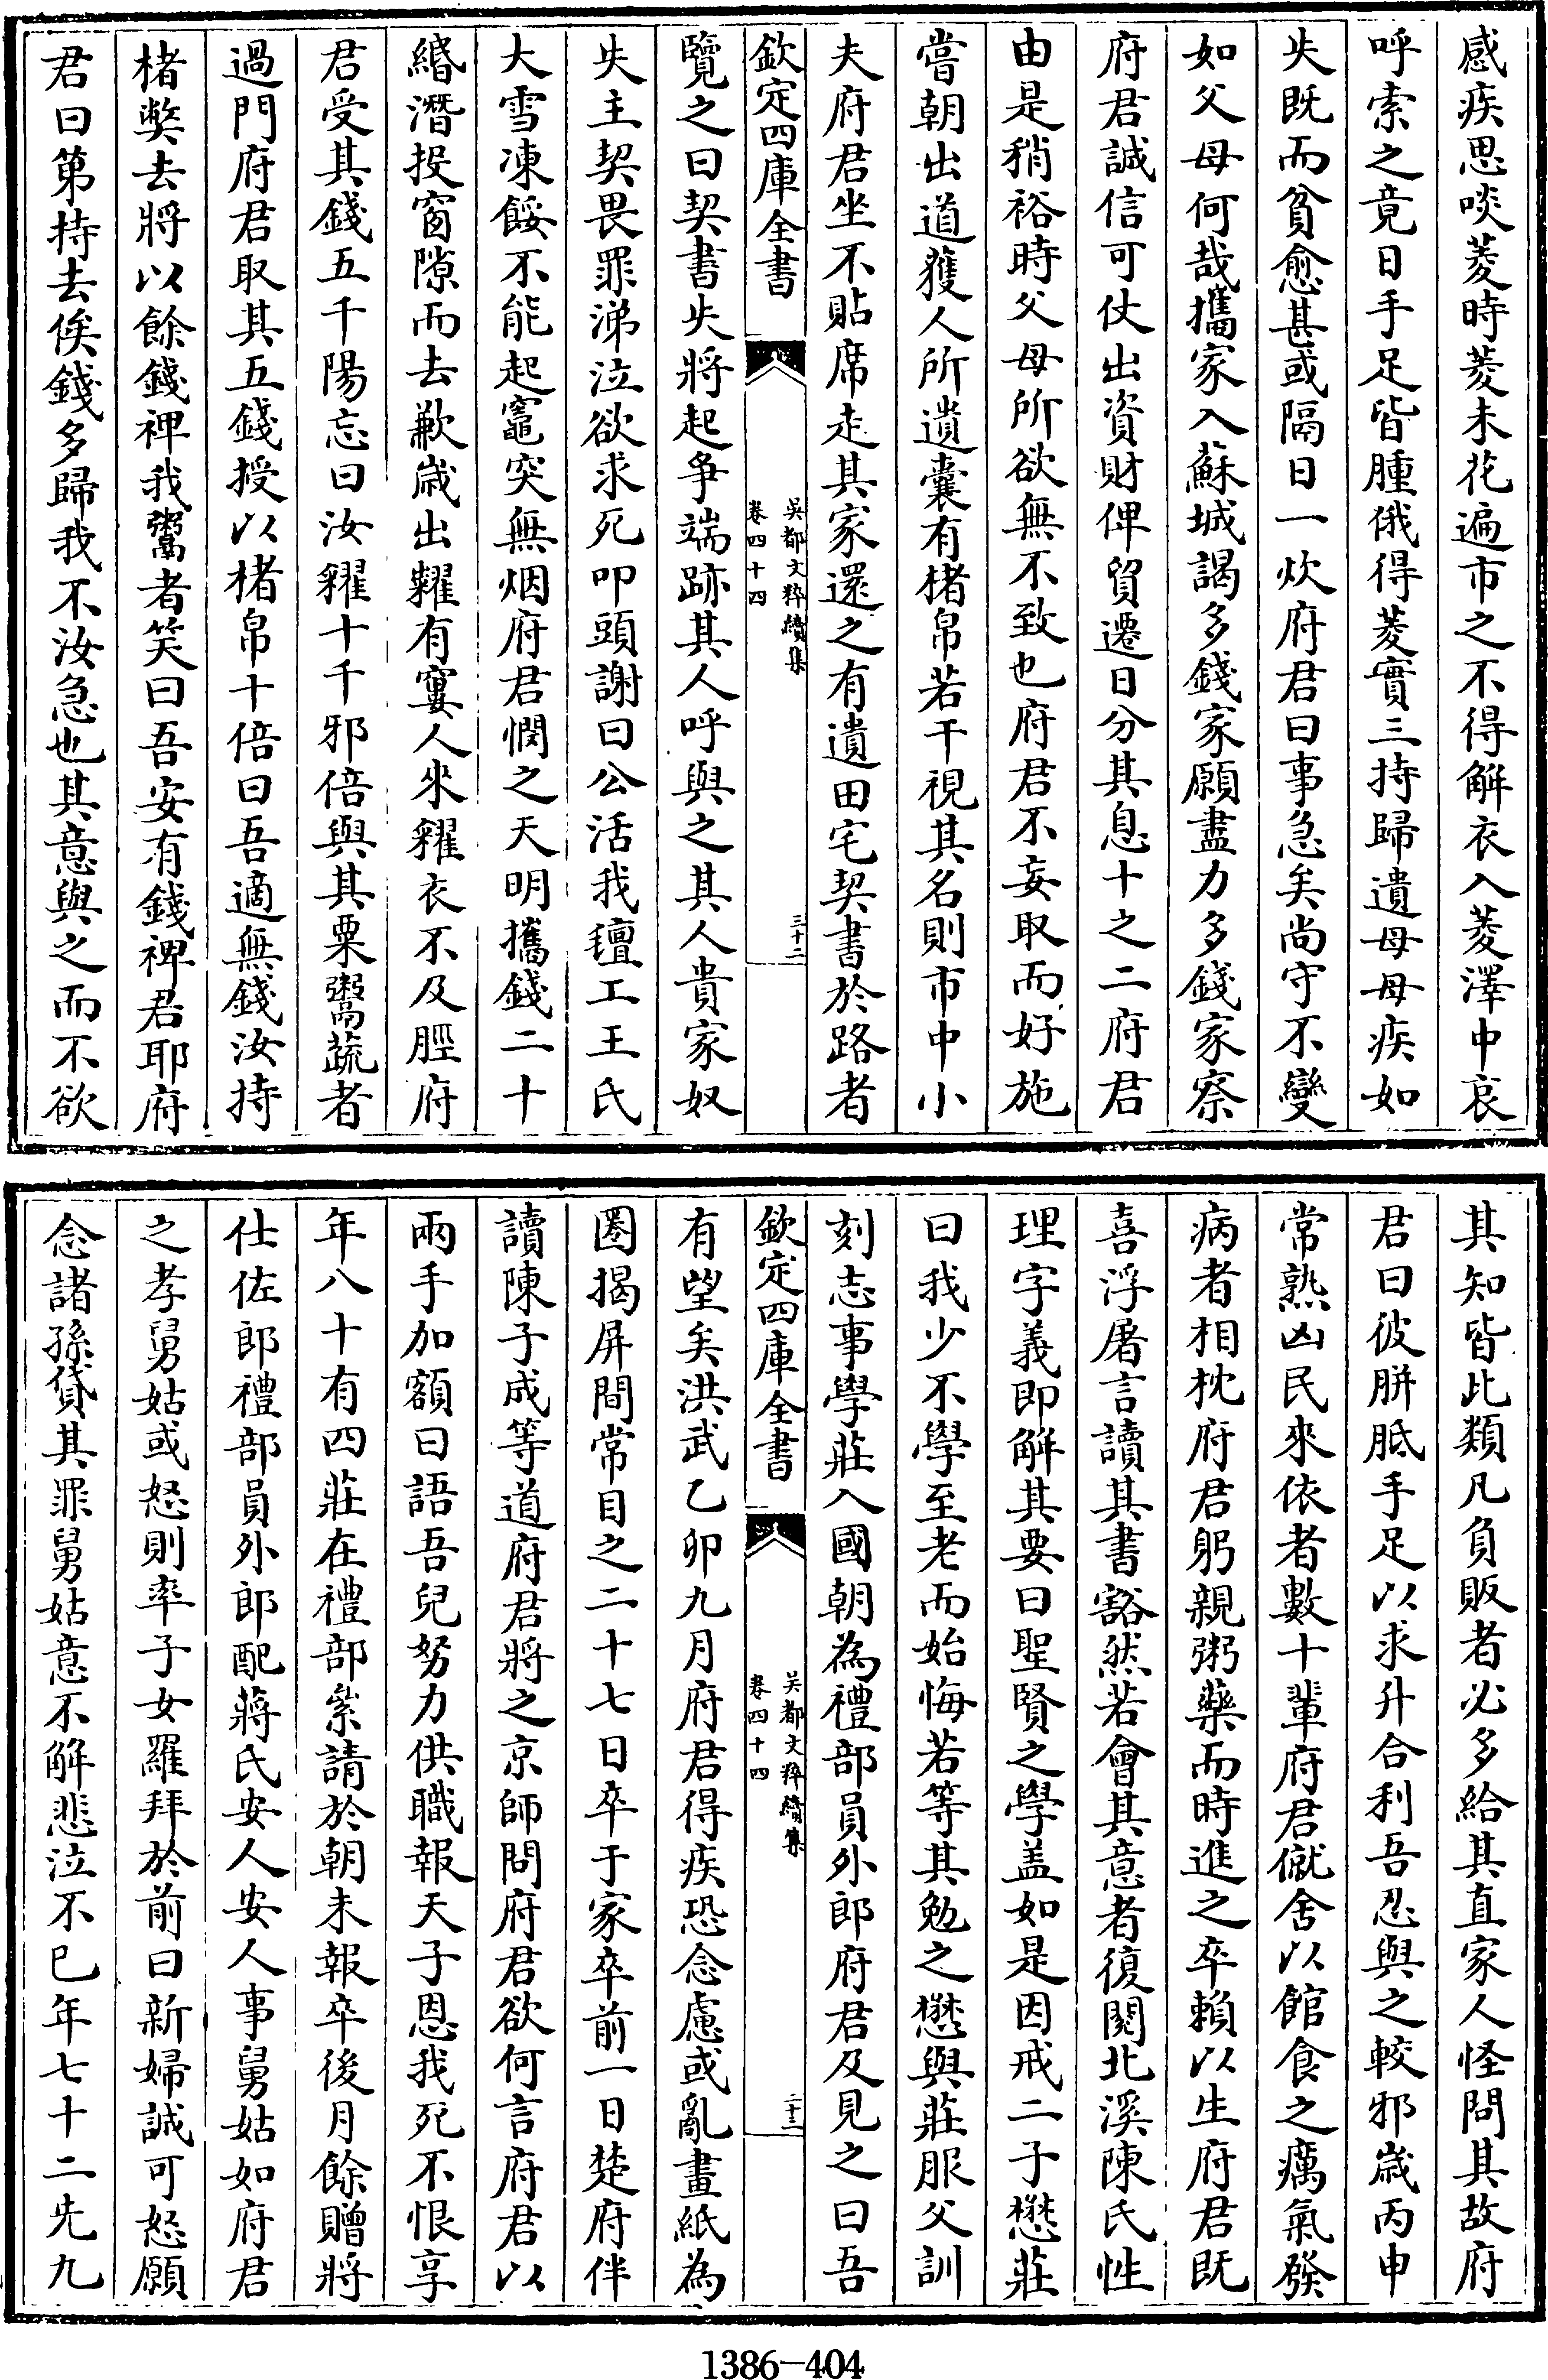 感疾思啖菱時菱未花遍市之不得解衣入菱澤中哀
呼索之竟日手足皆腫俄得菱實三持歸遺母母疾如
失既而貧愈甚或隔日一炊府君曰事急矣尚守不變
如父母何哉攜家入蘇城謁多錢家願盡力多錢家察
府君誠信可仗出資財俾貿遷日分其息十之二府君
由是稍裕時父母所欲無不致也府君不妄取而好施
嘗朝出道獲人所遺囊有楮帛若干視其名則市中小
夫府君坐不貼席走其家還之有遺田宅契書於路者
欽定四庫全書
吳都文粹續集
卷四十四
三十二
覽之曰契書失將起爭端跡其人呼與之其人貴家奴
失主契畏罪涕泣欲求死叩頭謝曰公活我氊工王氏
大雪凍餒不能起竈突無烟府君憫之天明攜錢二十
緡潛投窗隙而去歉歲出糶有窶人來糴衣不及脛府
君受其錢五千陽忘曰汝糴十千邪倍與其粟鬻蔬者
過門府君取其五錢授以楮帛十倍曰吾適無錢汝持
楮弊去將以餘錢裨我鬻者笑曰吾安有錢裨君耶府
君曰第持去俟錢多歸我不汝急也其意與之而不欲
其知皆此類凡負販者必多給其直家人怪問其故府
君曰彼胼胝手足以求升合利吾忍與之較邪歲丙申
常熟凶民來依者數十輩府君僦舍以館食之癘氣發
病者相枕府君躬親粥藥而時進之卒賴以生府君既
喜浮屠言讀其書豁然若會其意者復閱北溪陳氏性
理字義即解其要曰聖賢之學盖如是因戒二子懋莊
曰我少不學至老而始悔若等其勉之懋與莊服父訓
刻志事學莊入國朝為禮部員外郎府君及見之曰吾
欽定四庫全書
吳都文粹續集
卷四十四
三十三
有望矣洪武乙卯九月府君得疾恐念慮或亂畫紙為
圈揭屏間常目之二十七日卒于家卒前一日楚府伴
讀陳子成等道府君將之京師問府君欲何言府君以
兩手加額曰語吾兒努力供職報天子恩我死不恨享
年八十有四莊在禮部絫請於朝未報卒後月餘贈將
仕佐郎禮部員外郎配蔣氏安人安人事舅姑如府君
之孝舅姑或怒則率子女羅拜於前曰新婦誠可怒願
念諸孫貸其罪舅姑意不解悲泣不已年七十二先九
1386-404